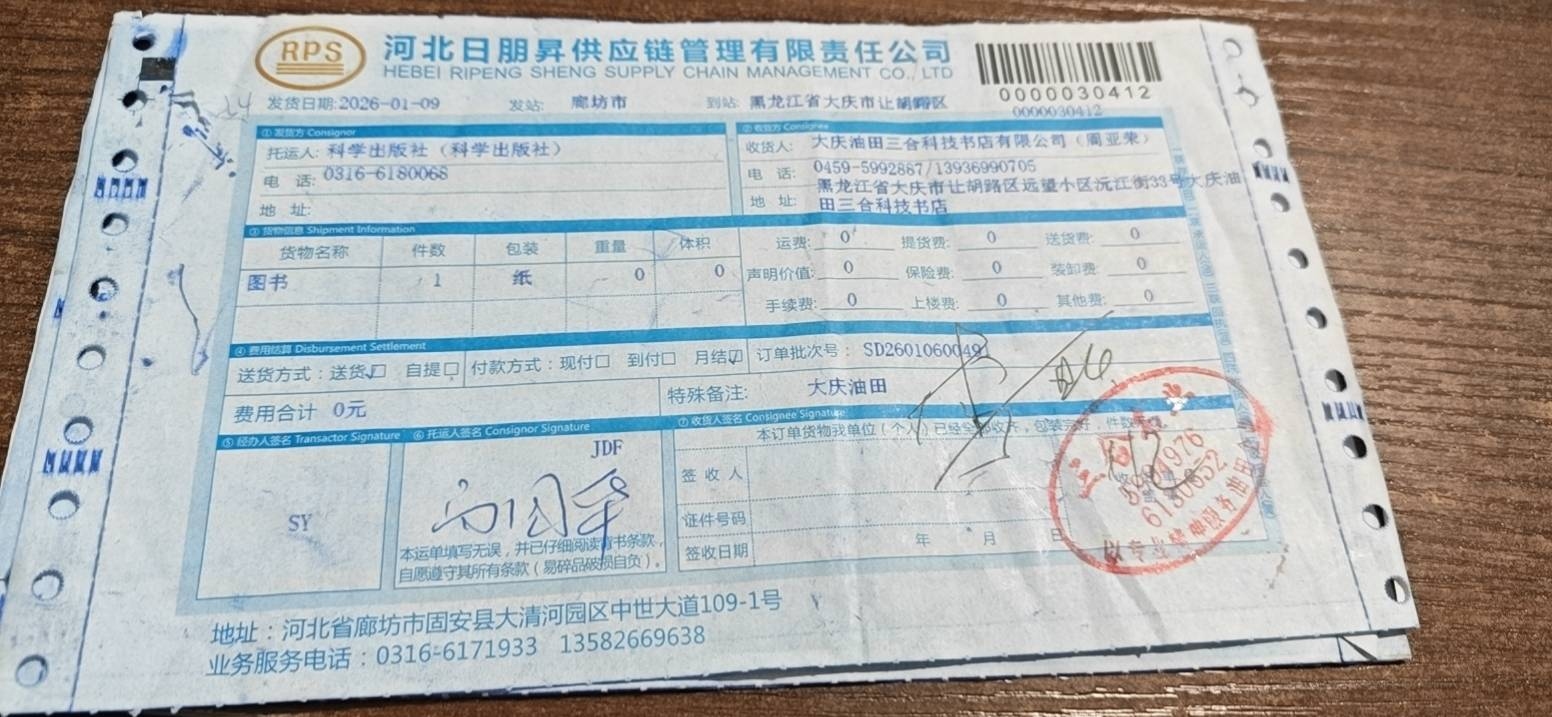 RPS
河北日朋昇供应链管理有限责任公司
HEBEI RIPENG SHENG SUPPLY CHAIN MANAGEMENT CO., LTD
0000030412
0000030412
发货日期:2026-01-09 发站: 廊坊市 到站: 黑龙江省大庆市让胡路区
①发货方 Consignor
托运人: 科学出版社（科学出版社）
电 话: 0316-6180068
地 址:
②收货方 Consignee
收货人: 大庆油田三合科技书店有限公司（周亚荣）
电 话: 0459-5992887/13936990705
地 址: 黑龙江省大庆市让胡路区远望小区沅江街33号大庆油
田三合科技书店
③货物信息 Shipment Information
货物名称 件数 包装 重量 体积
图书 1 纸 0 0
运费: 0 提货费: 0 送货费: 0
声明价值: 0 保险费: 0 装卸费: 0
手续费: 0 上楼费: 0 其他费: 0
④费用结算 Disbursement Settlement
送货方式：送货☑ 自提□ 付款方式：现付□ 到付□ 月结☑ 订单批次号： SD2601060049
费用合计 0元
特殊备注: 大庆油田
⑤经办人签名 Transactor Signature
SY
⑥托运人签名 Consignor Signature
JDF
本运单填写无误，并已仔细阅读背书条款，
自愿遵守其所有条款（易碎品破损自负）。
⑦收货人签名 Consignee Signature
本订单货物我单位（个人）已经全部收齐，包装完好，件数
签 收 人
证件号码
签收日期 年 月 日
地址：河北省廊坊市固安县大清河园区中世大道109-1号
业务服务电话：0316-6171933 13582669638